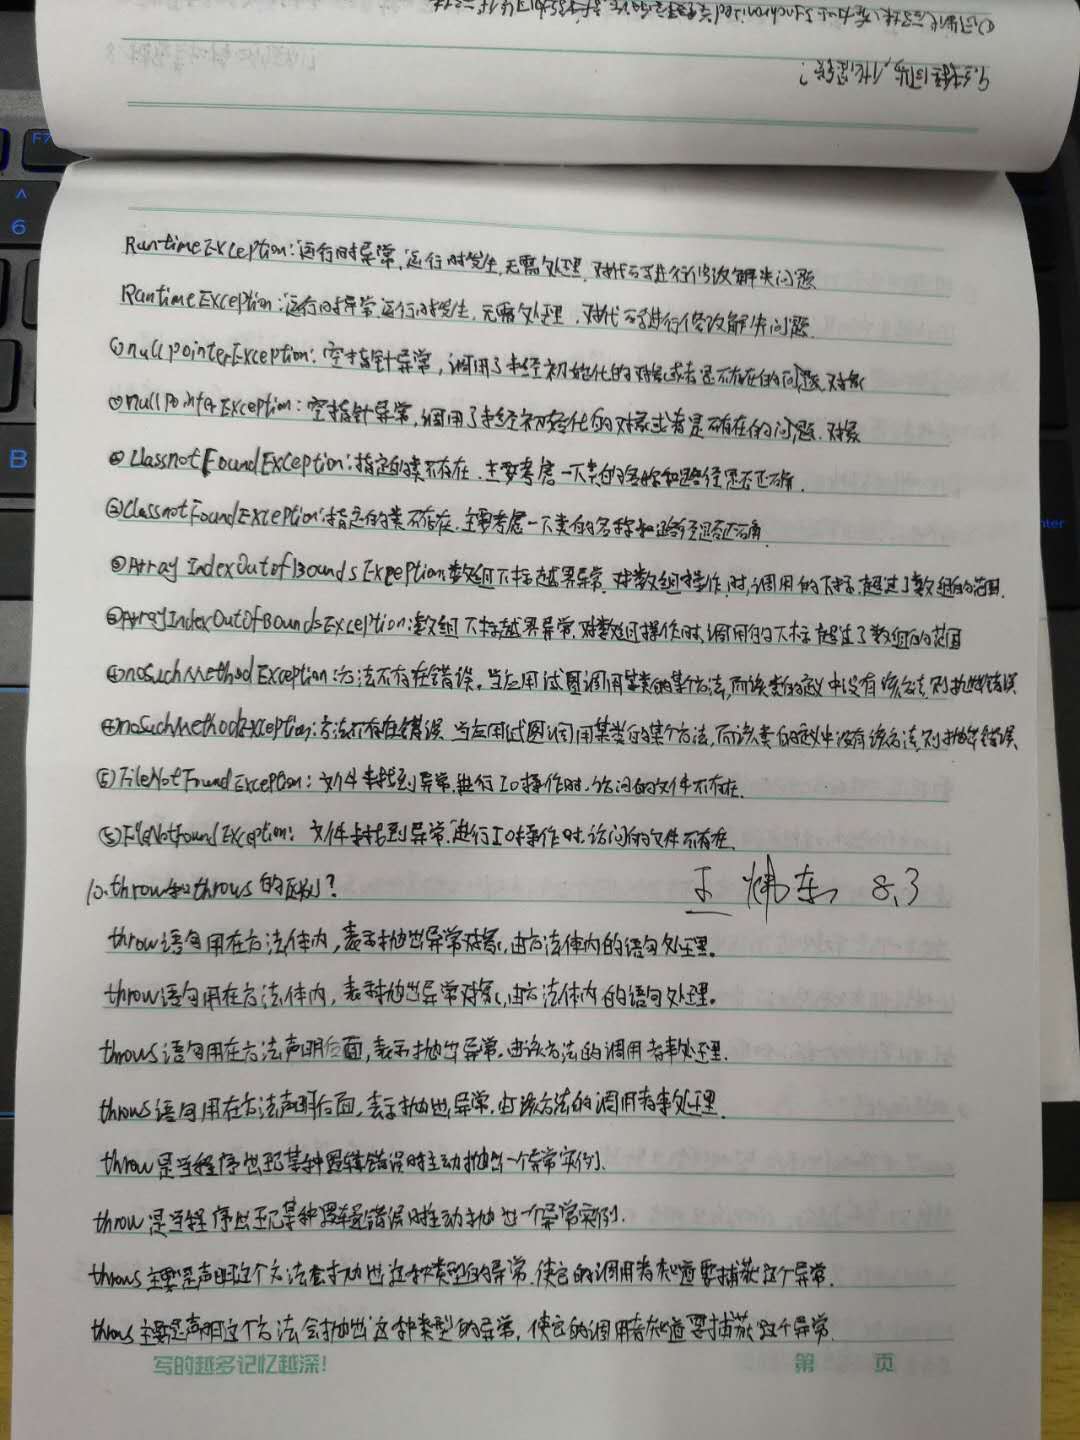 9.
RuntimeException:运行时异常,运行时发生,无需处理,对代码进行修改解决问题
RuntimeException:运行时异常,运行时发生,无需处理,对代码进行修改解决问题.
①nullpointerException:空指针异常,调用了未经初始化的对象或者是不存在的问题.对象
①nullPointerException:空指针异常,调用了未经初始化的对象或者是不存在的问题.对象
②ClassnotFoundException:指定的类不存在.主要考虑一下类的名称和路径是否正确.
②ClassnotFoundException:指定的类不存在.主要考虑一下类的名称和路径是否正确
③ArrayIndexOutofBoundsException:数组下标越界异常.对数组操作时,调用的下标超过了数组的范围.
③ArrayIndexOutOfBoundsException:数组下标越界异常.对数组操作时,调用的下标超过了数组的范围
④nosuchMethodException:方法不存在错误。当应用试图调用某类的某个方法,而该类的定义中没有该方法,则抛出错误
④nosuchMethodException:方法不存在错误 当应用试图调用某类的某个方法,而该类的定义中没有该方法,则抛出错误
⑤FileNotFoundException:文件未找到异常.进行IO操作时.访问的文件不存在.
⑤FileNotFoundException:文件未找到异常.进行IO操作时.访问的文件不存在.
王 东 8.3
10.throw和throws的区别?
throw语句用在方法体内,表示抛出异常对象,由方法体内的语句处理。
throw语句用在方法体内,表示抛出异常对象,由方法体内的语句处理。
throws语句用在方法声明后面,表示抛出异常,由该方法的调用者来处理.
throws语句用在方法声明后面,表示抛出异常,由该方法的调用者来处理.
throw是当程序出现某种逻辑错误时主动抛出一个异常实例.
throw是当程序出现某种逻辑错误时主动抛出一个异常实例.
throws主要是声明这个方法会抛出这种类型的异常.使它的调用者知道要捕获这个异常.
throws主要是声明这个方法会抛出这种类型的异常,使它的调用者知道要捕获这个异常.
写的越多记忆越深!
第 页